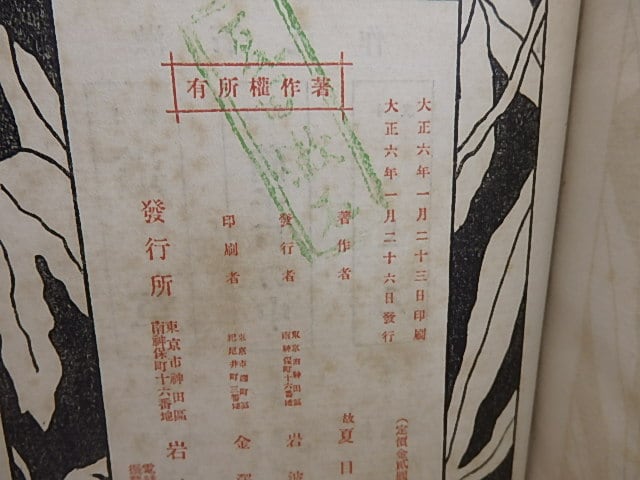 著作權所有
大正六年一月二十三日印刷
大正六年一月二十六日發行
(定價金貳
著作者 故 夏目
發行者 東京市神田區南神保町十六番地 岩波
印刷者 金
發行所 東京市神田區南神保町十六番地 岩
電話